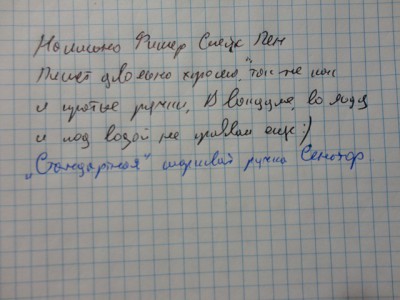 Написано Фишер Спейс Пен
Пишет довольно хорошо, так-же как
и простые ручки, В вакууме, во льду
и под водой не пробовал еще :)
„Стандартная" шариковая ручка Сенатор